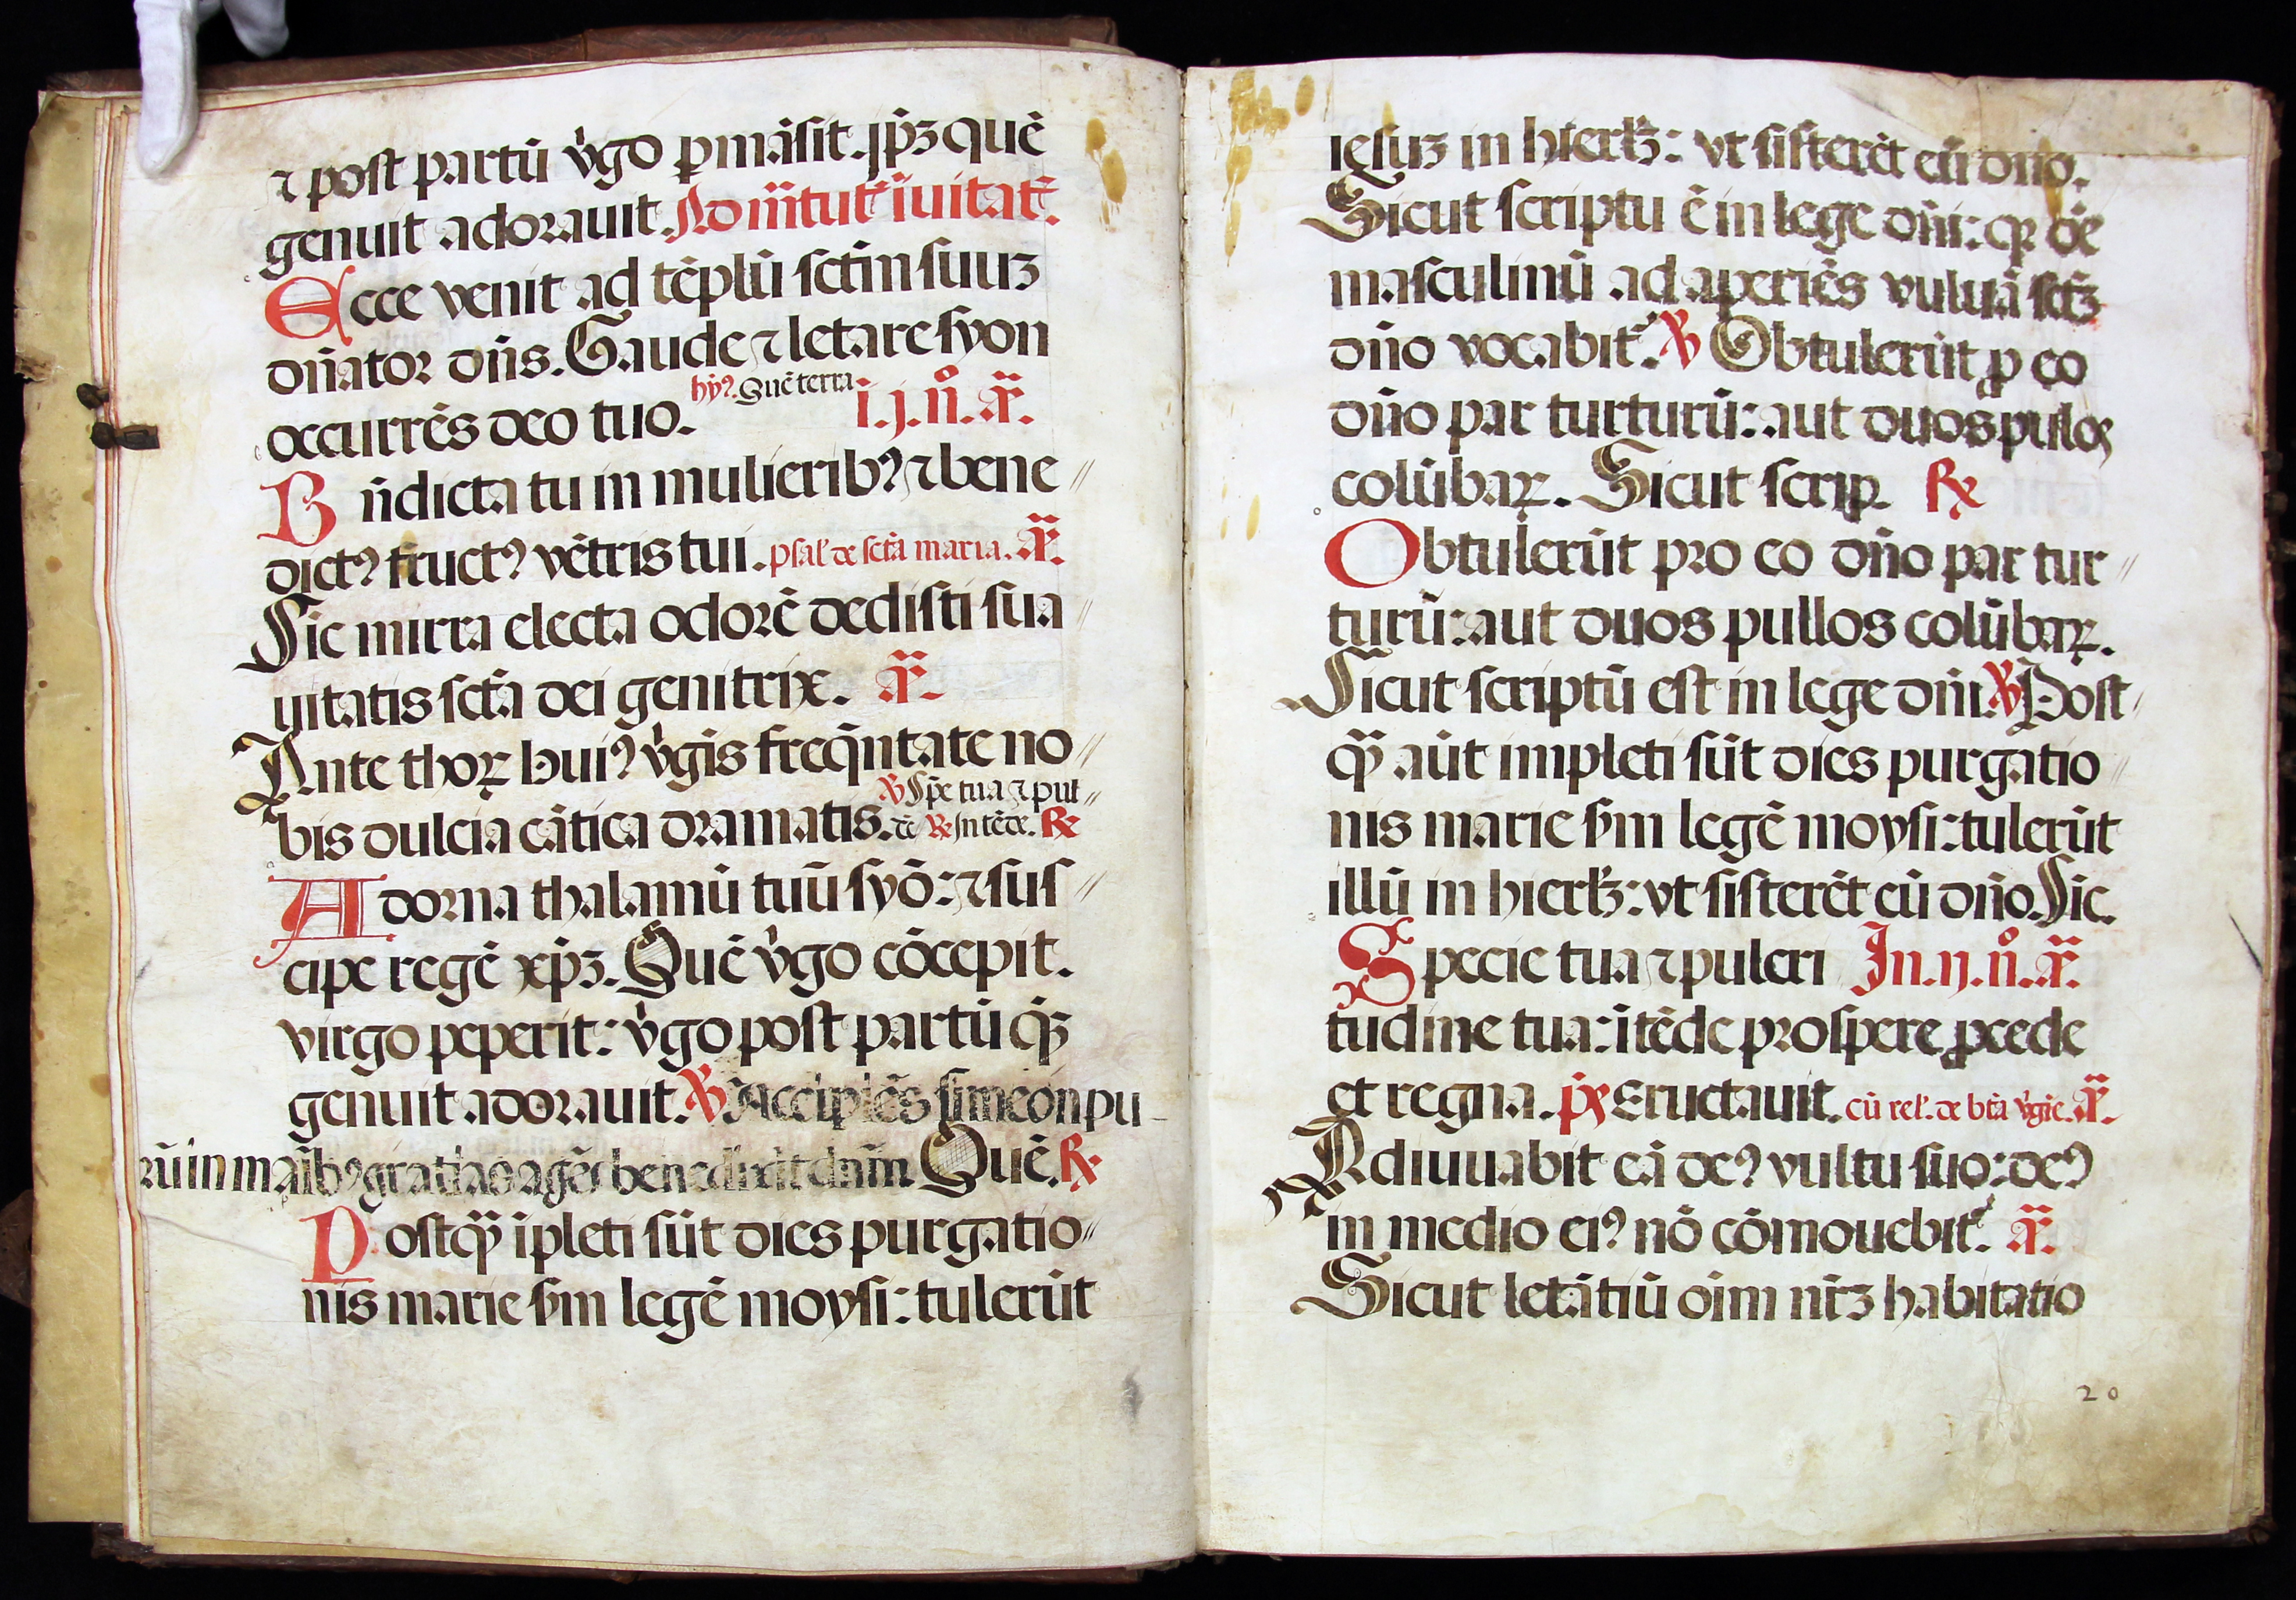 ⁊ post partū v̓go ꝑmāsit. ip̄ꝫ quē
genuit adorauit. Ad m̄tut̄ īuitat̄.
Ecce venit ad tēplū sct̄m suuꝫ
dn̄ator dn̄s. Gaude ⁊ letare syon
hȳꝰ. Quē terra
occurrēs deo tuo. i. j. n̊. a̅ꝛ.
Bn̄dicta tu in mulieribꝰ ⁊ bene //
dictꝰ fructꝰ vētris tui. psal̓ de sctā maria. a̅ꝛ.
Sic mirra electa odorē dedisti sua //
uitatis sctā dei genitrix. a̅ꝛ.
Ante thoꝝ huiꝰ v̓gīs freq̄ntate no //
℣ Sp̄e tua ⁊ pul //
bis dulcia cātica dramatis. dē ℞ Intēde. ℞
Adorna thalamū tuū syō: ⁊ sus //
cipe regē xp̄ꝫ. Quē v̓go cōcepit.
virgo peperit: v̓go post partū q̄ꝫ
genuit adorauit. ℣ Accipiēs simeon pu
rū in manibꝰ gratias agēs benedixit dn̄m Quē. ℞
Postq̄ꝫ īpleti sūt dies purgatio //
nis marie s̄m legē moysi: tulerūt
iesuꝫ in hierłꝫ: vt sisterēt eū dn̄o.
Sicut scriptu ē in lege dn̄i: qꝛ oē
masculinū adaperiēs vuluā sct̄ꝫ
dn̄o vocabit̄. ℣ Obtulerūt ꝓ eo
dn̄o par turturū: aut duos pulos
colūbaꝝ. Sicut scrip. ℞
Obtulerūt pro eo dn̄o par tur //
turū: aut duos pullos colūbaꝝ.
Sicut scriptū est in lege dn̄i. ℣ Post
q̄ꝫ aūt impleti sūt dies purgatio //
nis marie s̄m legē moysi: tulerūt
illū in hierłꝫ: vt sisterēt eū dn̄o. Sic.
Specie tua ⁊ pulcri In. ij. n̊. a̅ꝛ.
tudine tua: ītēde prospere ꝓcede
et regna. p̄s Eructauit. cū rel̓. de btā v̓gīe. a̅ꝛ.
Adiuuabit eā deꝰ vultu suo: deꝰ
in medio eiꝰ nō cōmouebit̄. a̅ꝛ.
Sicut letātiū oīm nr̄ꝫ habitatio
20